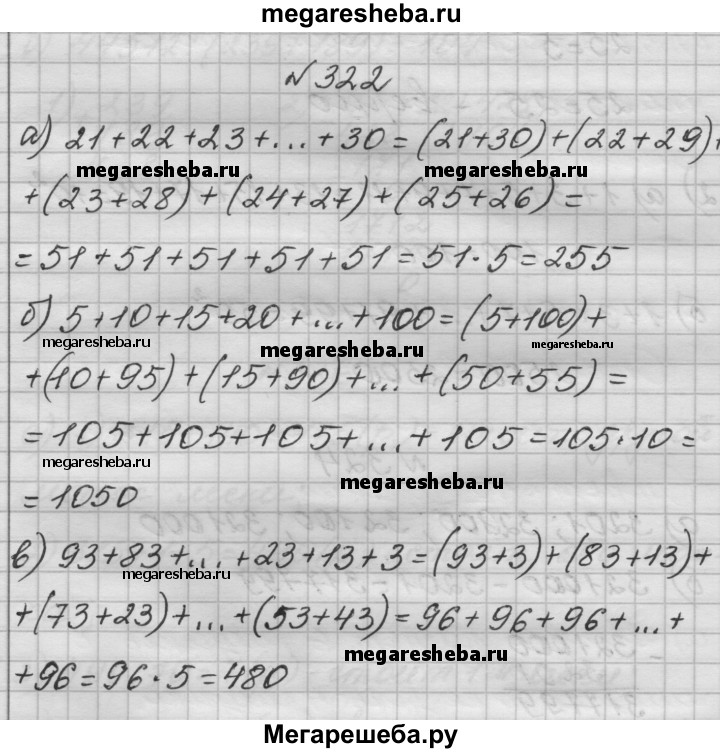 megaresheba.ru
№322
а) 21+22+23+...+30=(21+30)+(22+29)+
megaresheba.ru megaresheba.ru
+(23+28)+(24+27)+(25+26)=
=51+51+51+51+51=51·5=255
б) 5+10+15+20+...+100=(5+100)+
megaresheba.ru megaresheba.ru megaresheba.ru
+(10+95)+(15+90)+...+(50+55)=
=105+105+105+...+105=105·10=
megaresheba.ru megaresheba.ru
=1050
в) 93+83+...+23+13+3=(93+3)+(83+13)+
megaresheba.ru
+(73+23)+...+(53+43)=96+96+96+...+
megaresheba.ru
+96=96·5=480
Мегарешеба.ру